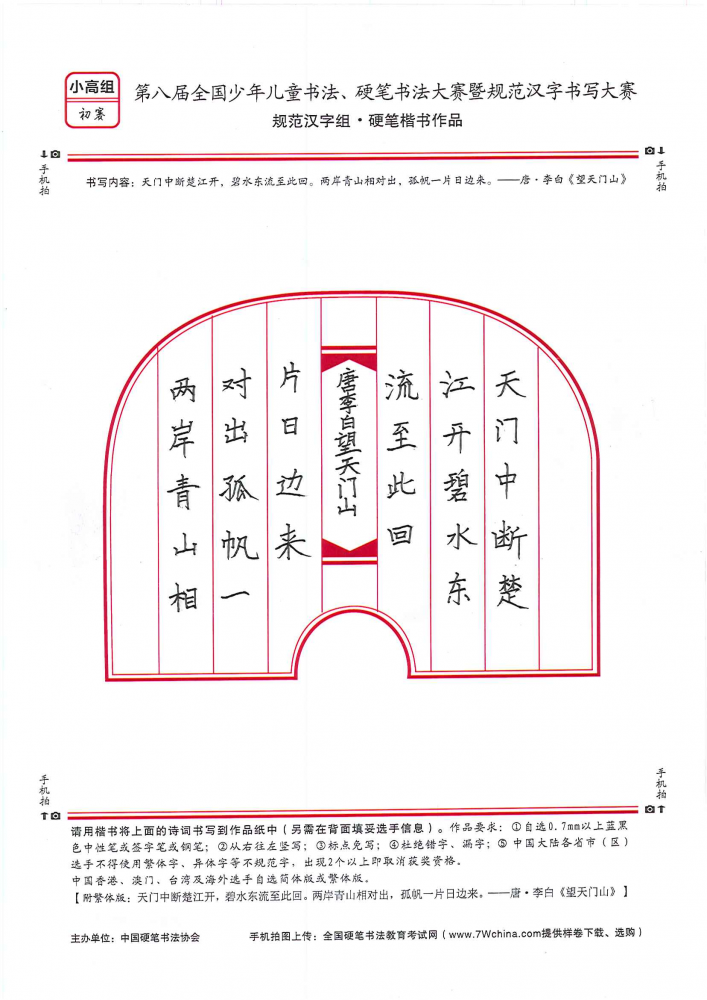 小高组
初赛
第八届全国少年儿童书法、硬笔书法大赛暨规范汉字书写大赛
规范汉字组·硬笔楷书作品
手机拍
手机拍
书写内容：天门中断楚江开，碧水东流至此回。两岸青山相对出，孤帆一片日边来。——唐·李白《望天门山》
天门中断楚
江开碧水东
流至此回
唐李白望天门山
片日边来
对出孤帆一
两岸青山相
手机拍
手机拍
请用楷书将上面的诗词书写到作品纸中（另需在背面填妥选手信息）。作品要求：①自选0.7mm以上蓝黑
色中性笔或签字笔或钢笔；②从右往左竖写；③标点免写；④杜绝错字、漏字；⑤中国大陆各省市（区）
选手不得使用繁体字、异体字等不规范字，出现2个以上即取消获奖资格。
中国香港、澳门、台湾及海外选手自选简体版或繁体版。
【附繁体版：天门中断楚江开，碧水东流至此回。两岸青山相对出，孤帆一片日边来。——唐·李白《望天门山》】
主办单位：中国硬笔书法协会
手机拍图上传：全国硬笔书法教育考试网（www.7Wchina.com提供样卷下载、选购）